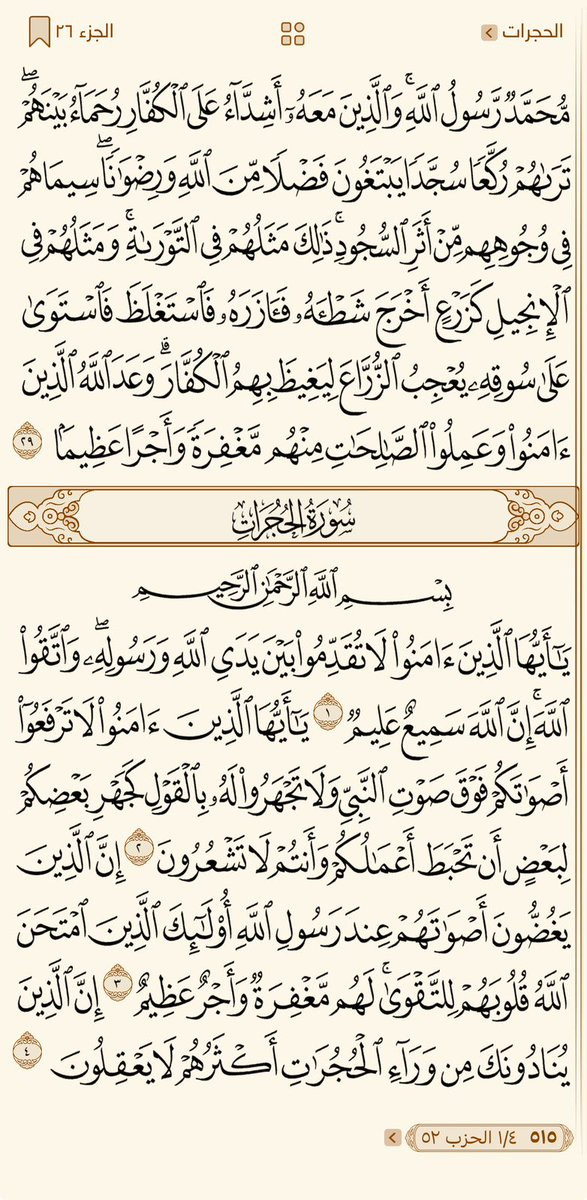 الحجرات
الجزء ٢٦
مُّحَمَّدٌ رَّسُولُ ٱللَّهِۚ وَٱلَّذِينَ مَعَهُۥٓ أَشِدَّآءُ عَلَى ٱلْكُفَّارِ رُحَمَآءُ بَيْنَهُمْۖ
تَرَىٰهُمْ رُكَّعًا سُجَّدًا يَبْتَغُونَ فَضْلًا مِّنَ ٱللَّهِ وَرِضْوَٰنًاۖ سِيمَاهُمْ
فِى وُجُوهِهِم مِّنْ أَثَرِ ٱلسُّجُودِۚ ذَٰلِكَ مَثَلُهُمْ فِى ٱلتَّوْرَىٰةِۚ وَمَثَلُهُمْ فِى
ٱلْإِنجِيلِ كَزَرْعٍ أَخْرَجَ شَطْـَٔهُۥ فَـَٔازَرَهُۥ فَٱسْتَغْلَظَ فَٱسْتَوَىٰ
عَلَىٰ سُوقِهِۦ يُعْجِبُ ٱلزُّرَّاعَ لِيَغِيظَ بِهِمُ ٱلْكُفَّارَۗ وَعَدَ ٱللَّهُ ٱلَّذِينَ
ءَامَنُوا۟ وَعَمِلُوا۟ ٱلصَّٰلِحَٰتِ مِنْهُم مَّغْفِرَةً وَأَجْرًا عَظِيمًۢا ٢٩
سُورَةُ الحُجُرَاتِ
بِسْمِ ٱللَّهِ ٱلرَّحْمَٰنِ ٱلرَّحِيمِ
يَٰٓأَيُّهَا ٱلَّذِينَ ءَامَنُوا۟ لَا تُقَدِّمُوا۟ بَيْنَ يَدَىِ ٱللَّهِ وَرَسُولِهِۦۖ وَٱتَّقُوا۟
ٱللَّهَۚ إِنَّ ٱللَّهَ سَمِيعٌ عَلِيمٌ ١ يَٰٓأَيُّهَا ٱلَّذِينَ ءَامَنُوا۟ لَا تَرْفَعُوٓا۟
أَصْوَٰتَكُمْ فَوْقَ صَوْتِ ٱلنَّبِىِّ وَلَا تَجْهَرُوا۟ لَهُۥ بِٱلْقَوْلِ كَجَهْرِ بَعْضِكُمْ
لِبَعْضٍ أَن تَحْبَطَ أَعْمَٰلُكُمْ وَأَنتُمْ لَا تَشْعُرُونَ ٢ إِنَّ ٱلَّذِينَ
يَغُضُّونَ أَصْوَٰتَهُمْ عِندَ رَسُولِ ٱللَّهِ أُو۟لَٰٓئِكَ ٱلَّذِينَ ٱمْتَحَنَ
ٱللَّهُ قُلُوبَهُمْ لِلتَّقْوَىٰۚ لَهُم مَّغْفِرَةٌ وَأَجْرٌ عَظِيمٌ ٣ إِنَّ ٱلَّذِينَ
يُنَادُونَكَ مِن وَرَآءِ ٱلْحُجُرَٰتِ أَكْثَرُهُمْ لَا يَعْقِلُونَ ٤
٥١٥ ١/٤ الحزب ٥٢